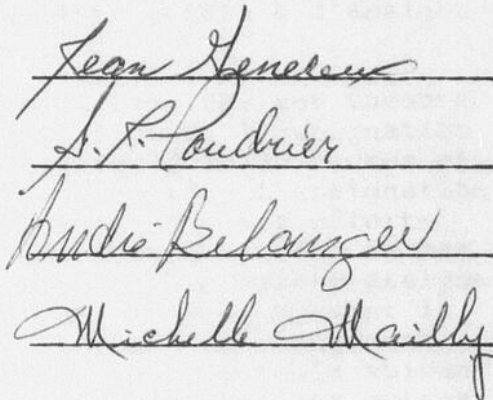 Jean Genereux
S. P. Poudrier
André Belanger
Michelle Mailly